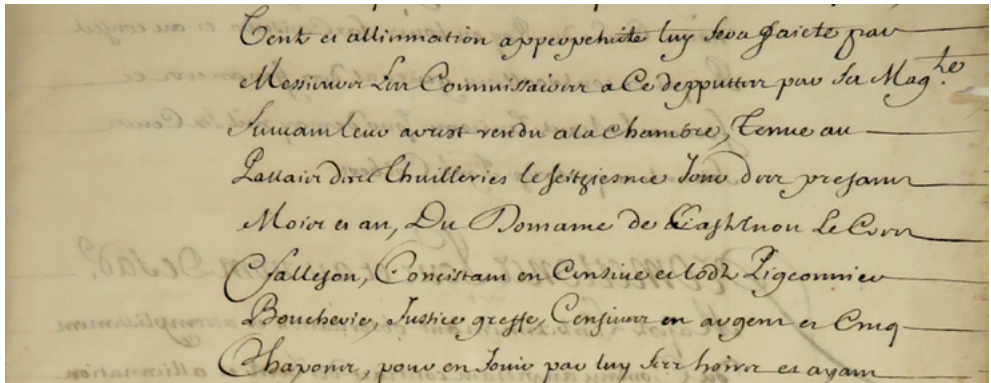 Vente et allienation apperpetuité luy sera faicte par
Messieurs Les Commissaires a Ce depputter par Sa Mag.te
Suivant leur arrest rendu a la Chambre, Tenue au
Pallais des Thuilleries le seitziesme Jour des presans
Mois et an, Du Domaine de
Consistant en Censive et lodz Pigeonnier
Boucherie, Justice greffe, Censives en argent et Cinq
Chapons, pour en Jouir par luy ses hoirs et ayans